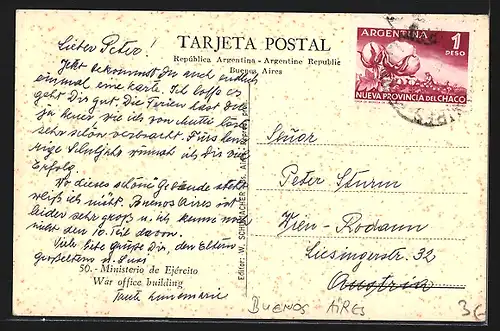 TARJETA POSTAL
República Argentina - Argentine Republic
Buenos Aires
ARGENTINA 1 PESO
NUEVA PROVINCIA DEL CHACO
Lieber Peter!
Jetzt bekommst Du auch endlich
einmal eine Karte. Ich hoffe es
geht Dir gut. Die Ferien hast Du
ja heuer wie ich von Mutti hörte
sehr schön verbracht. Fürs
Schuljahr wünsch ich Dir viel
Erfolg
Wo dieses schöne Gebäude steht
weiß ich nicht. Buenos Aires ist
leider sehr groß u. ich kenne noch
nicht den 10. Teil davon.
Viele liebe Grüße Dir, den Eltern
Großeltern u. Susi
Tante Annemarie
50.- Ministerio de Ejército
War office building
Editor: W. SCHUMACHER
Señor
Peter Sturm
Wien - Rodaun
Liesingerstr. 32
Austria
BUENOS AIRES
3€